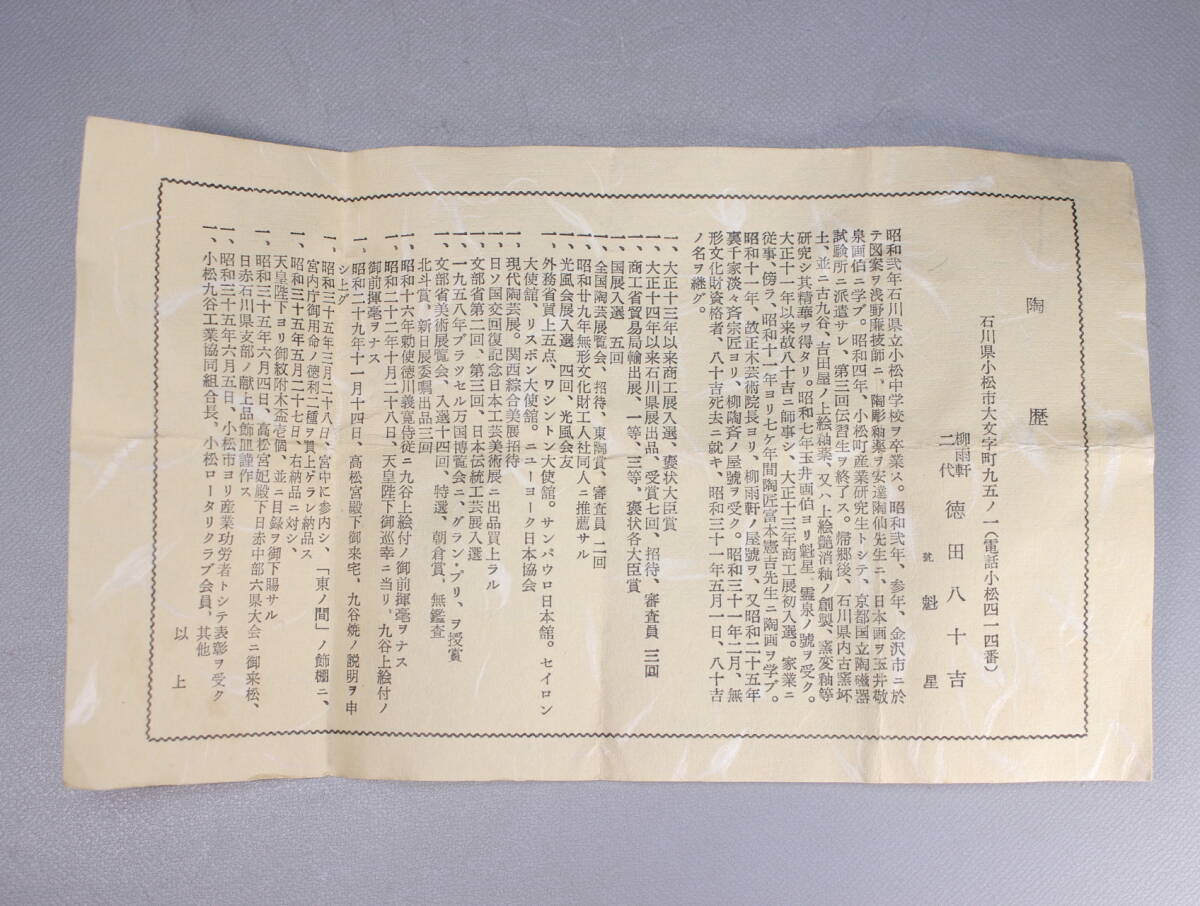 陶歴
石川県小松市大文字町九五ノ一(電話小松四一一四番)
柳雨軒
二代 徳田八十吉
號 魁星
昭和弐年石川県立小松中学校ヲ卒業ス。昭和弐年、参年、金沢市ニ於
テ図案ヲ浅野廉技師ニ、陶彫釉薬ヲ安達陶仙先生ニ、日本画ヲ玉井敬
泉画伯ニ学ブ。昭和四年、小松町産業研究生トシテ、京都国立陶磁器
試験所ニ派遣サレ、第三回伝習生ヲ終了ス。帰郷後、石川県内古窯坏
土、並ニ古九谷、吉田屋ノ上絵釉薬、又ハ上絵艶消釉ノ創製、窯変釉等
研究シ其精華ヲ得タリ。昭和七年玉井画伯ヨリ魁星、靈泉ノ號ヲ受ク。
大正十一年以来故八十吉ニ師事シ、大正十三年商工展初入選。家業ニ
従事、傍ラ、昭和十一年ヨリ七ケ年間陶匠富本憲吉先生ニ陶画ヲ学ブ。
昭和十一年、故正木芸術院長ヨリ、柳雨軒ノ屋號ヲ、又昭和二十五年
裏千家淡々斉宗匠ヨリ、柳陶斉ノ屋號ヲ受ク。昭和三十一年二月、無
形文化財資格者、八十吉死去ニ就キ、昭和三十一年五月一日、八十吉
ノ名ヲ継グ。
一、大正十三年以来商工展入選、褒状大臣賞
一、大正十四年以来石川県展出品、受賞七回、招待、審査員 三回
一、商工省貿易局輸出展、一等、三等、褒状各大臣賞
一、国展入選 五回
一、全国陶芸展覧会、招待、東陶賞、審査員 二回
一、昭和廿九年無形文化財工人社同人ニ推薦サル
一、光風会展入選 四回、光風会会友
一、外務省買上五点、ワシントン大使館。サンパウロ日本館。セイロン
大使館、リスボン大使館。ニューヨーク日本協会
一、現代陶芸展。関西綜合美展招待
一、日ソ国交回復記念日本工芸美術展ニ出品買上ラル
一、文部省第二回、第三回、日本伝統工芸展入選
一、一九五八年ブラッセル万国博覧会ニ、グラン・プリ、ヲ授賞
一、文部省美術展覧会、入選十四回、特選、朝倉賞、無鑑査
北斗賞、新日展委嘱出品三回
一、昭和十六年勅使徳川義寛侍従ニ九谷上絵付ノ御前揮毫ヲナス
一、昭和二十二年十月二十八日、天皇陛下御巡幸ニ当リ、九谷上絵付ノ
御前揮毫ヲナス
一、昭和二十九年十一月十四日、高松宮殿下御来宅、九谷焼ノ説明ヲ申
シ上グ
一、昭和三十五年三月二十八日、宮中に参内シ、「東ノ間」ノ飾棚ニ、
宮内庁御用命ノ徳利二種ヲ買上ゲラレ納品ス
一、昭和三十五年五月二十七日、右納品ニ対シ、
天皇陛下ヨリ御紋附木盃壱個、並ニ目録ヲ御下賜サル
一、昭和三十五年六月四日、高松宮妃殿下日赤中部六県大会ニ御来松、
日赤石川県支部ノ献上品飾皿謹作ス
一、昭和三十五年六月五日、小松市ヨリ産業功労者トシテ表彰ヲ受ク
一、小松九谷工業協同組合長、小松ロータリクラブ会員、其他
以上